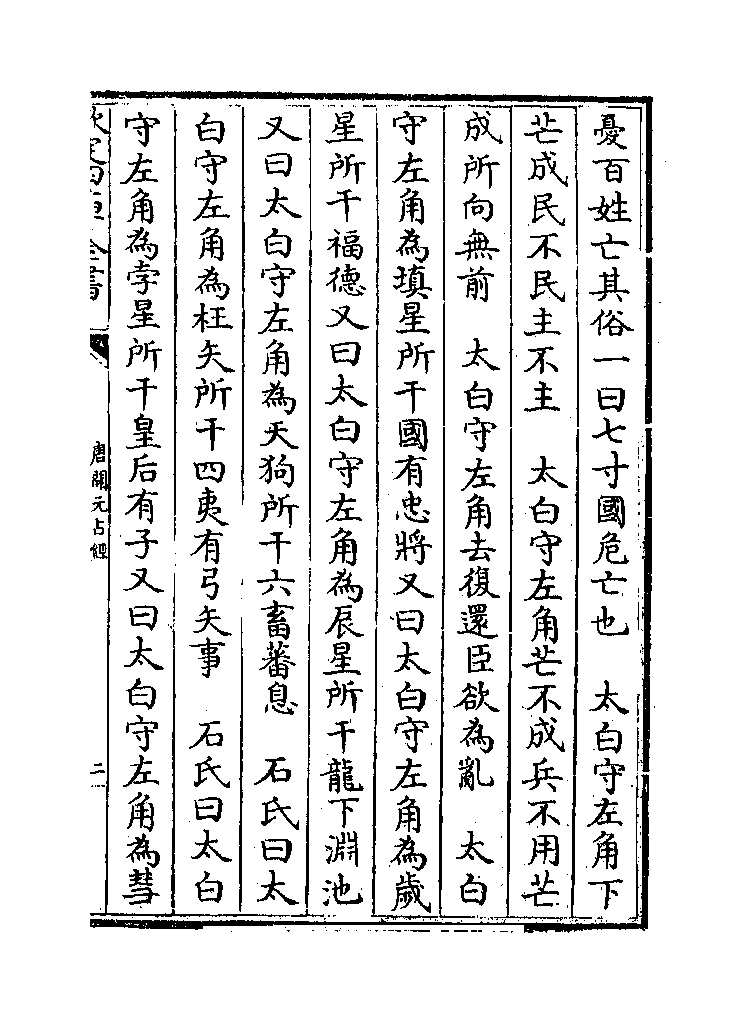 憂百姓亡其俗一曰七寸國危亡也　太白守左角下
芒成民不民主不主　太白守左角芒不成兵不用芒
成所向無前　太白守左角去復還臣欲為亂　太白
守左角為填星所干國有忠將又曰太白守左角為歲
星所干福德又曰太白守左角為辰星所干龍下淵池
又曰太白守左角為天狗所干六畜蕃息　石氏曰太
白守左角為枉矢所干四夷有弓矢事　石氏曰太白
守左角為孛星所干皇后有子又曰太白守左角為彗
欽定四庫全書
唐開元占經
二